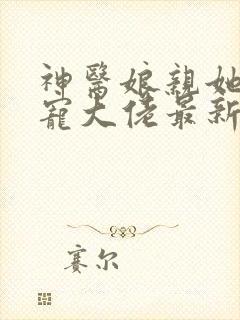 神醫娘親她
寵大佬最新
赛尔